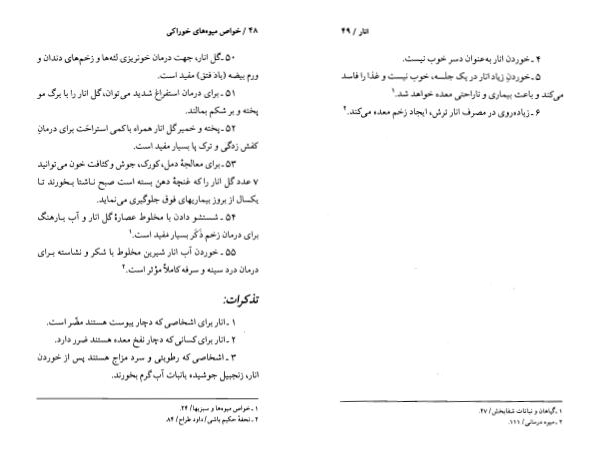 ۴۸ / خواص میوه‌های خوراکی
۵۰ ـ گل انار، جهت درمان خونریزی لثه‌ها و زخم‌های دندان و
ورم بیضه (باد فتق) مفید است.
۵۱ ـ برای درمان استفراغ شدید می‌توان، گل انار را با برگ مو
پخته و بر شکم بمالند.
۵۲ ـ پخته و خمیر گل انار همراه باکمی استراحت برای درمان
کفش زدگی و ترک پا بسیار مفید است.
۵۳ ـ برای معالجهٔ دمل، کورک، جوش و کثافت خون می‌توانید
۷ عدد گل انار را که غنچهٔ دهن بسته است صبح ناشتا بخورند تا
یکسال از بروز بیماریهای فوق جلوگیری می‌نماید.
۵۴ ـ شستشو دادن با مخلوط عصارهٔ گل انار و آب بارهنگ
برای درمان زخم ذَکَر بسیار مفید است.۱
۵۵ ـ خوردن آب انار شیرین مخلوط با شکر و نشاسته برای
درمان درد سینه و سرفه کاملاً مؤثر است.۲
تذکرات:
۱ ـ انار برای اشخاصی که دچار یبوست هستند مضّر است.
۲ ـ انار برای کسانی که دچار نفخ معده هستند ضرر دارد.
۳ ـ اشخاصی که رطوبتی و سرد مزاج هستند پس از خوردن
انار، زنجبیل جوشیده بانبات آب گرم بخورند.
۱ ـ خواص میوه‌ها و سبزیها / ۲۴.
۲ ـ تحفهٔ حکیم باشی / داود طراح / ۸۴.
انار / ۴۹
۴ ـ خوردن انار به‌عنوان دسر خوب نیست.
۵ ـ خوردنِ زیاد انار در یک جلسه، خوب نیست و غذا را فاسد
می‌کند و باعث بیماری و ناراحتی معده خواهد شد.۱
۶ ـ زیاده‌روی در مصرف انار ترش، ایجاد زخم معده می‌کند.۲
۱ ـ گیاهان و نباتات شفابخش / ۲۷.
۲ ـ میوه درمانی / ۱۱۱.